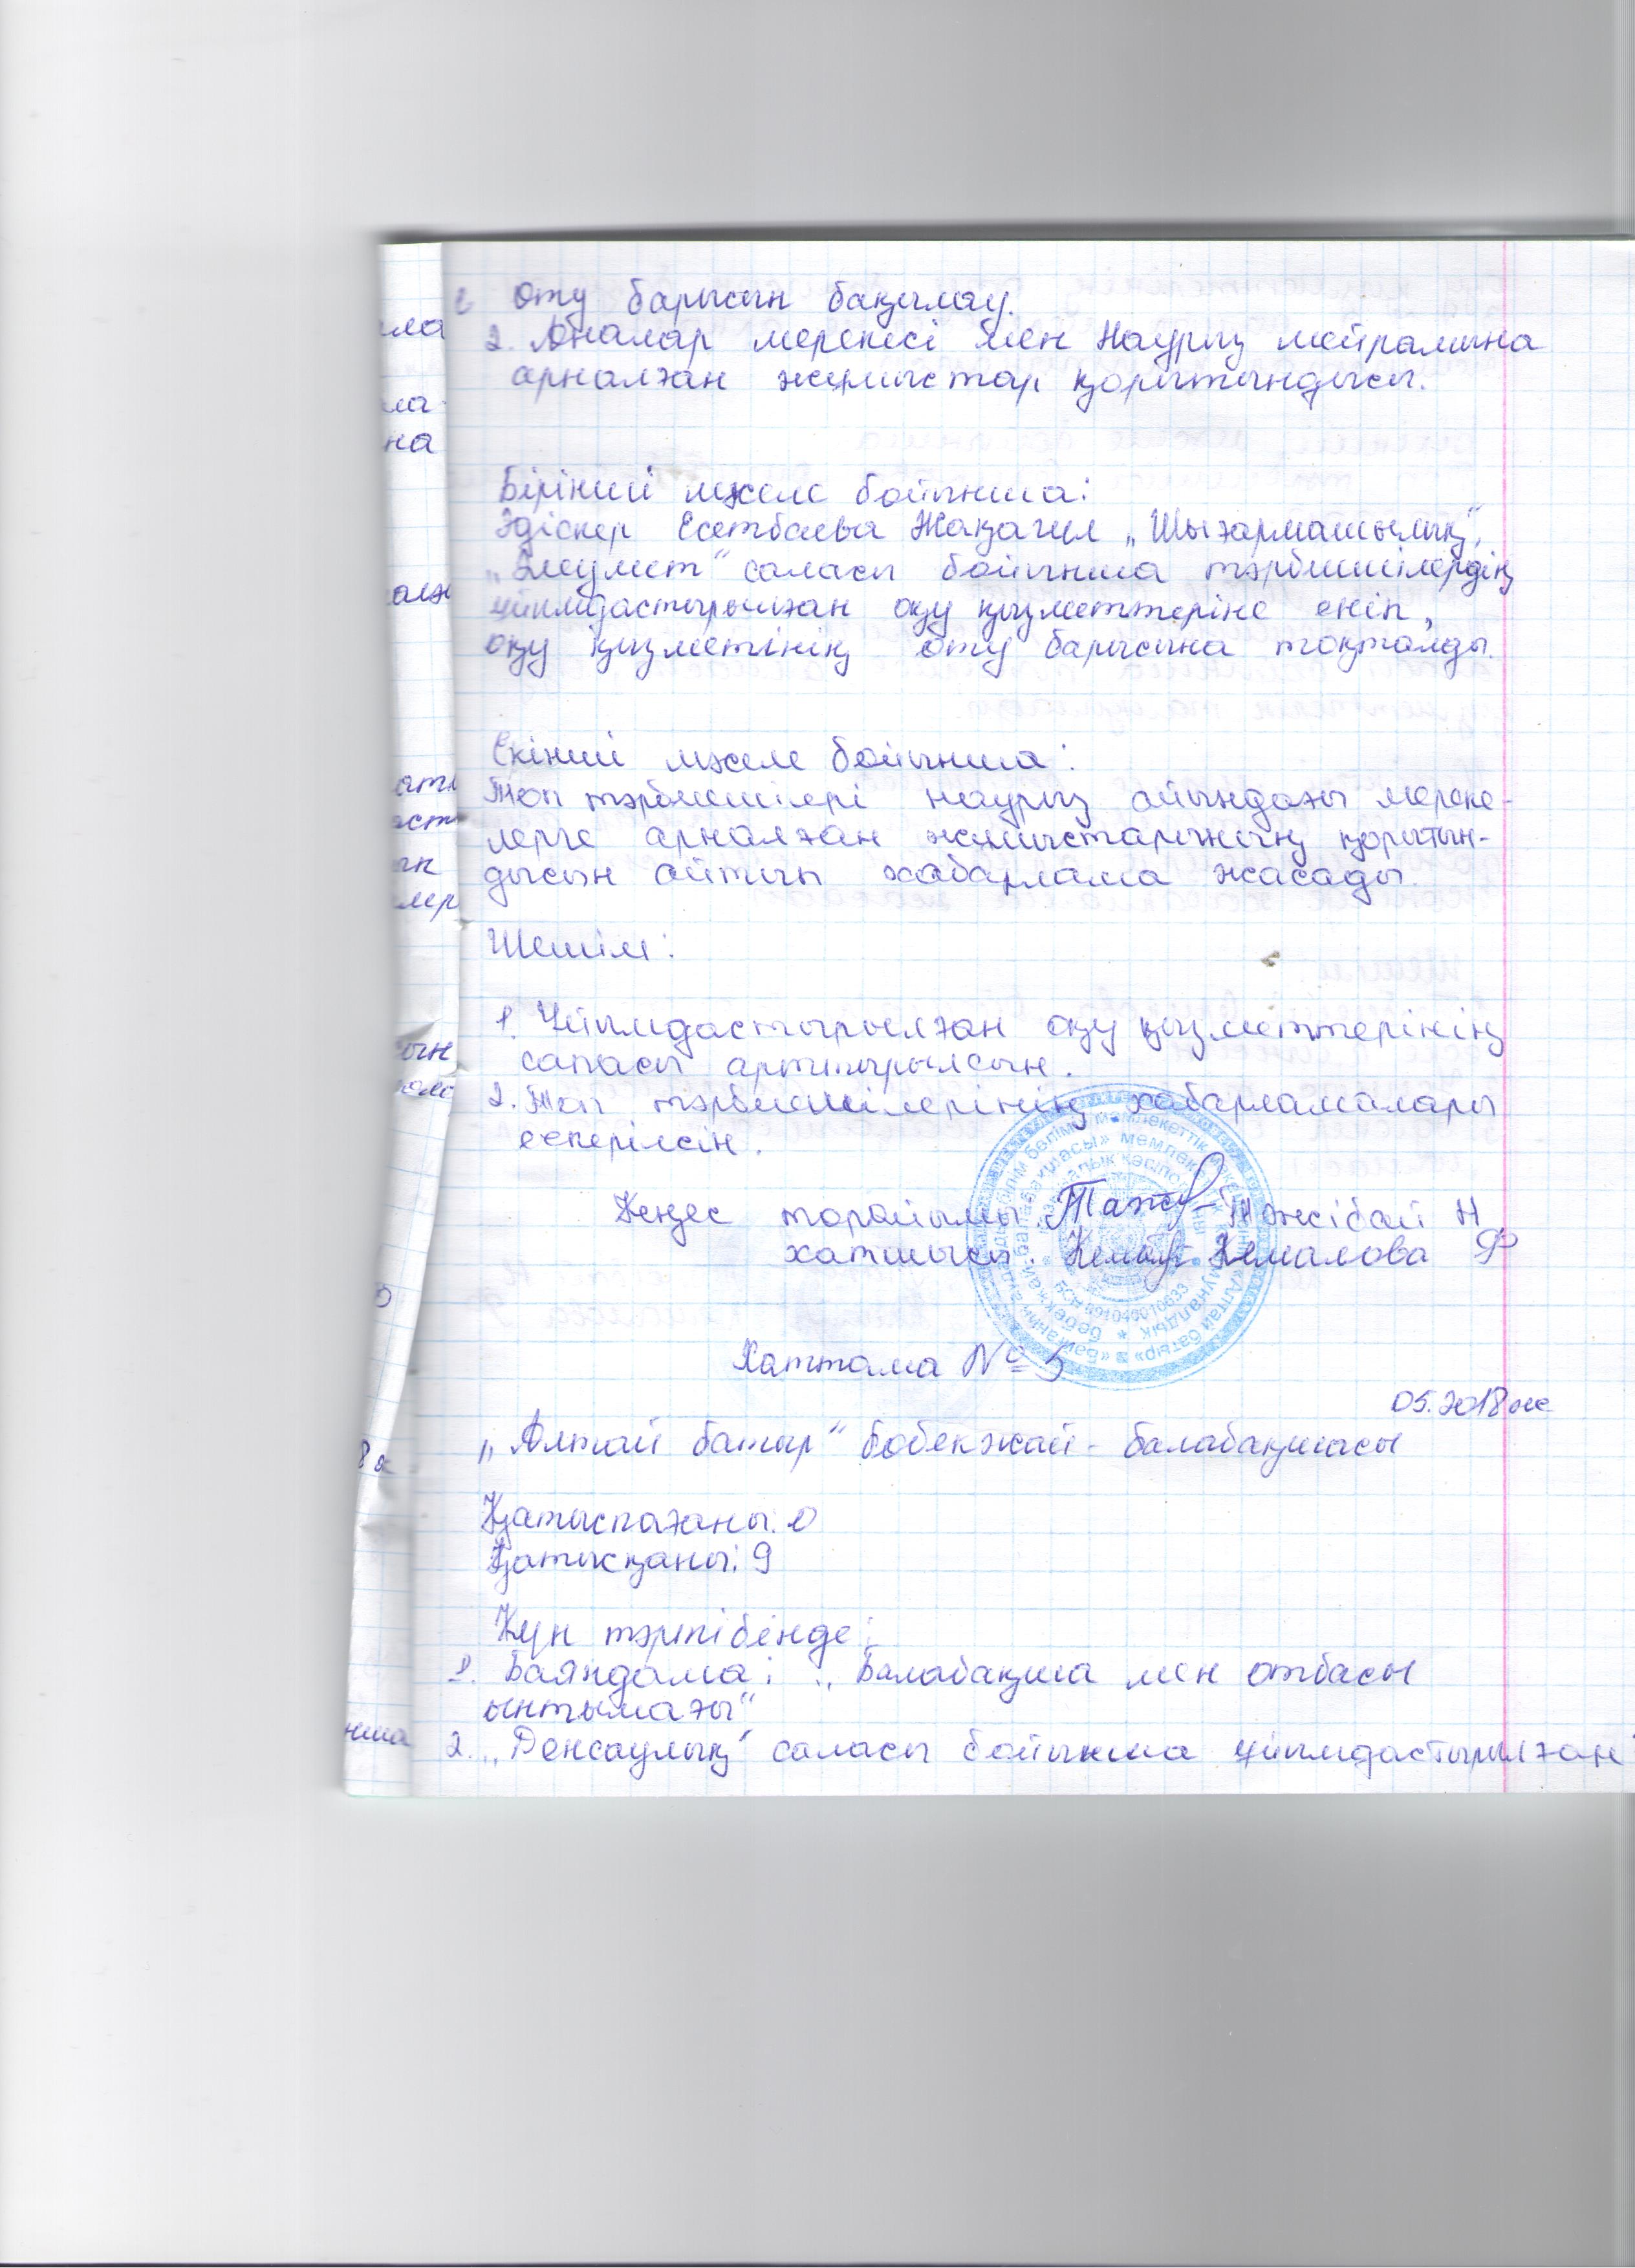 өту барысын бақылау.
2. Аналар мерекесі мен Наурыз мейрамына
арналған жұмыстар қорытындысы.
Бірінші мәселе бойынша:
Әдіскер Есетбаева Жаңагүл „Шығармашылық",
„Әлеумет" саласы бойынша тәрбиешілердің
ұйымдастырылған оқу қызметтеріне еніп,
оқу қызметінің өту барысына тоқталды.
Екінші мәселе бойынша:
Топ тәрбиешілері наурыз айындағы мереке-
лерге арналған жұмыстарының қорытын-
дысын айтып хабарлама жасады.
Шешім:
1. Ұйымдастырылған оқу қызметтерінің
сапасы арттырылсын.
2. Топ тәрбиешілерінің хабарламалары
ескерілсін.
Кеңес төрайымы: Тәжібай Н
хатшысы: Кемалова Ф
Хаттама № 5
05.2018 ж
„Алтай батыр" бөбекжай - балабақшасы
Қатыспағаны: 0
Қатысқаны: 9
Күн тәртібінде:
1. Баяндама: „Балабақша мен отбасы
ынтымағы"
2. „Денсаулық" саласы бойынша ұйымдастырылған